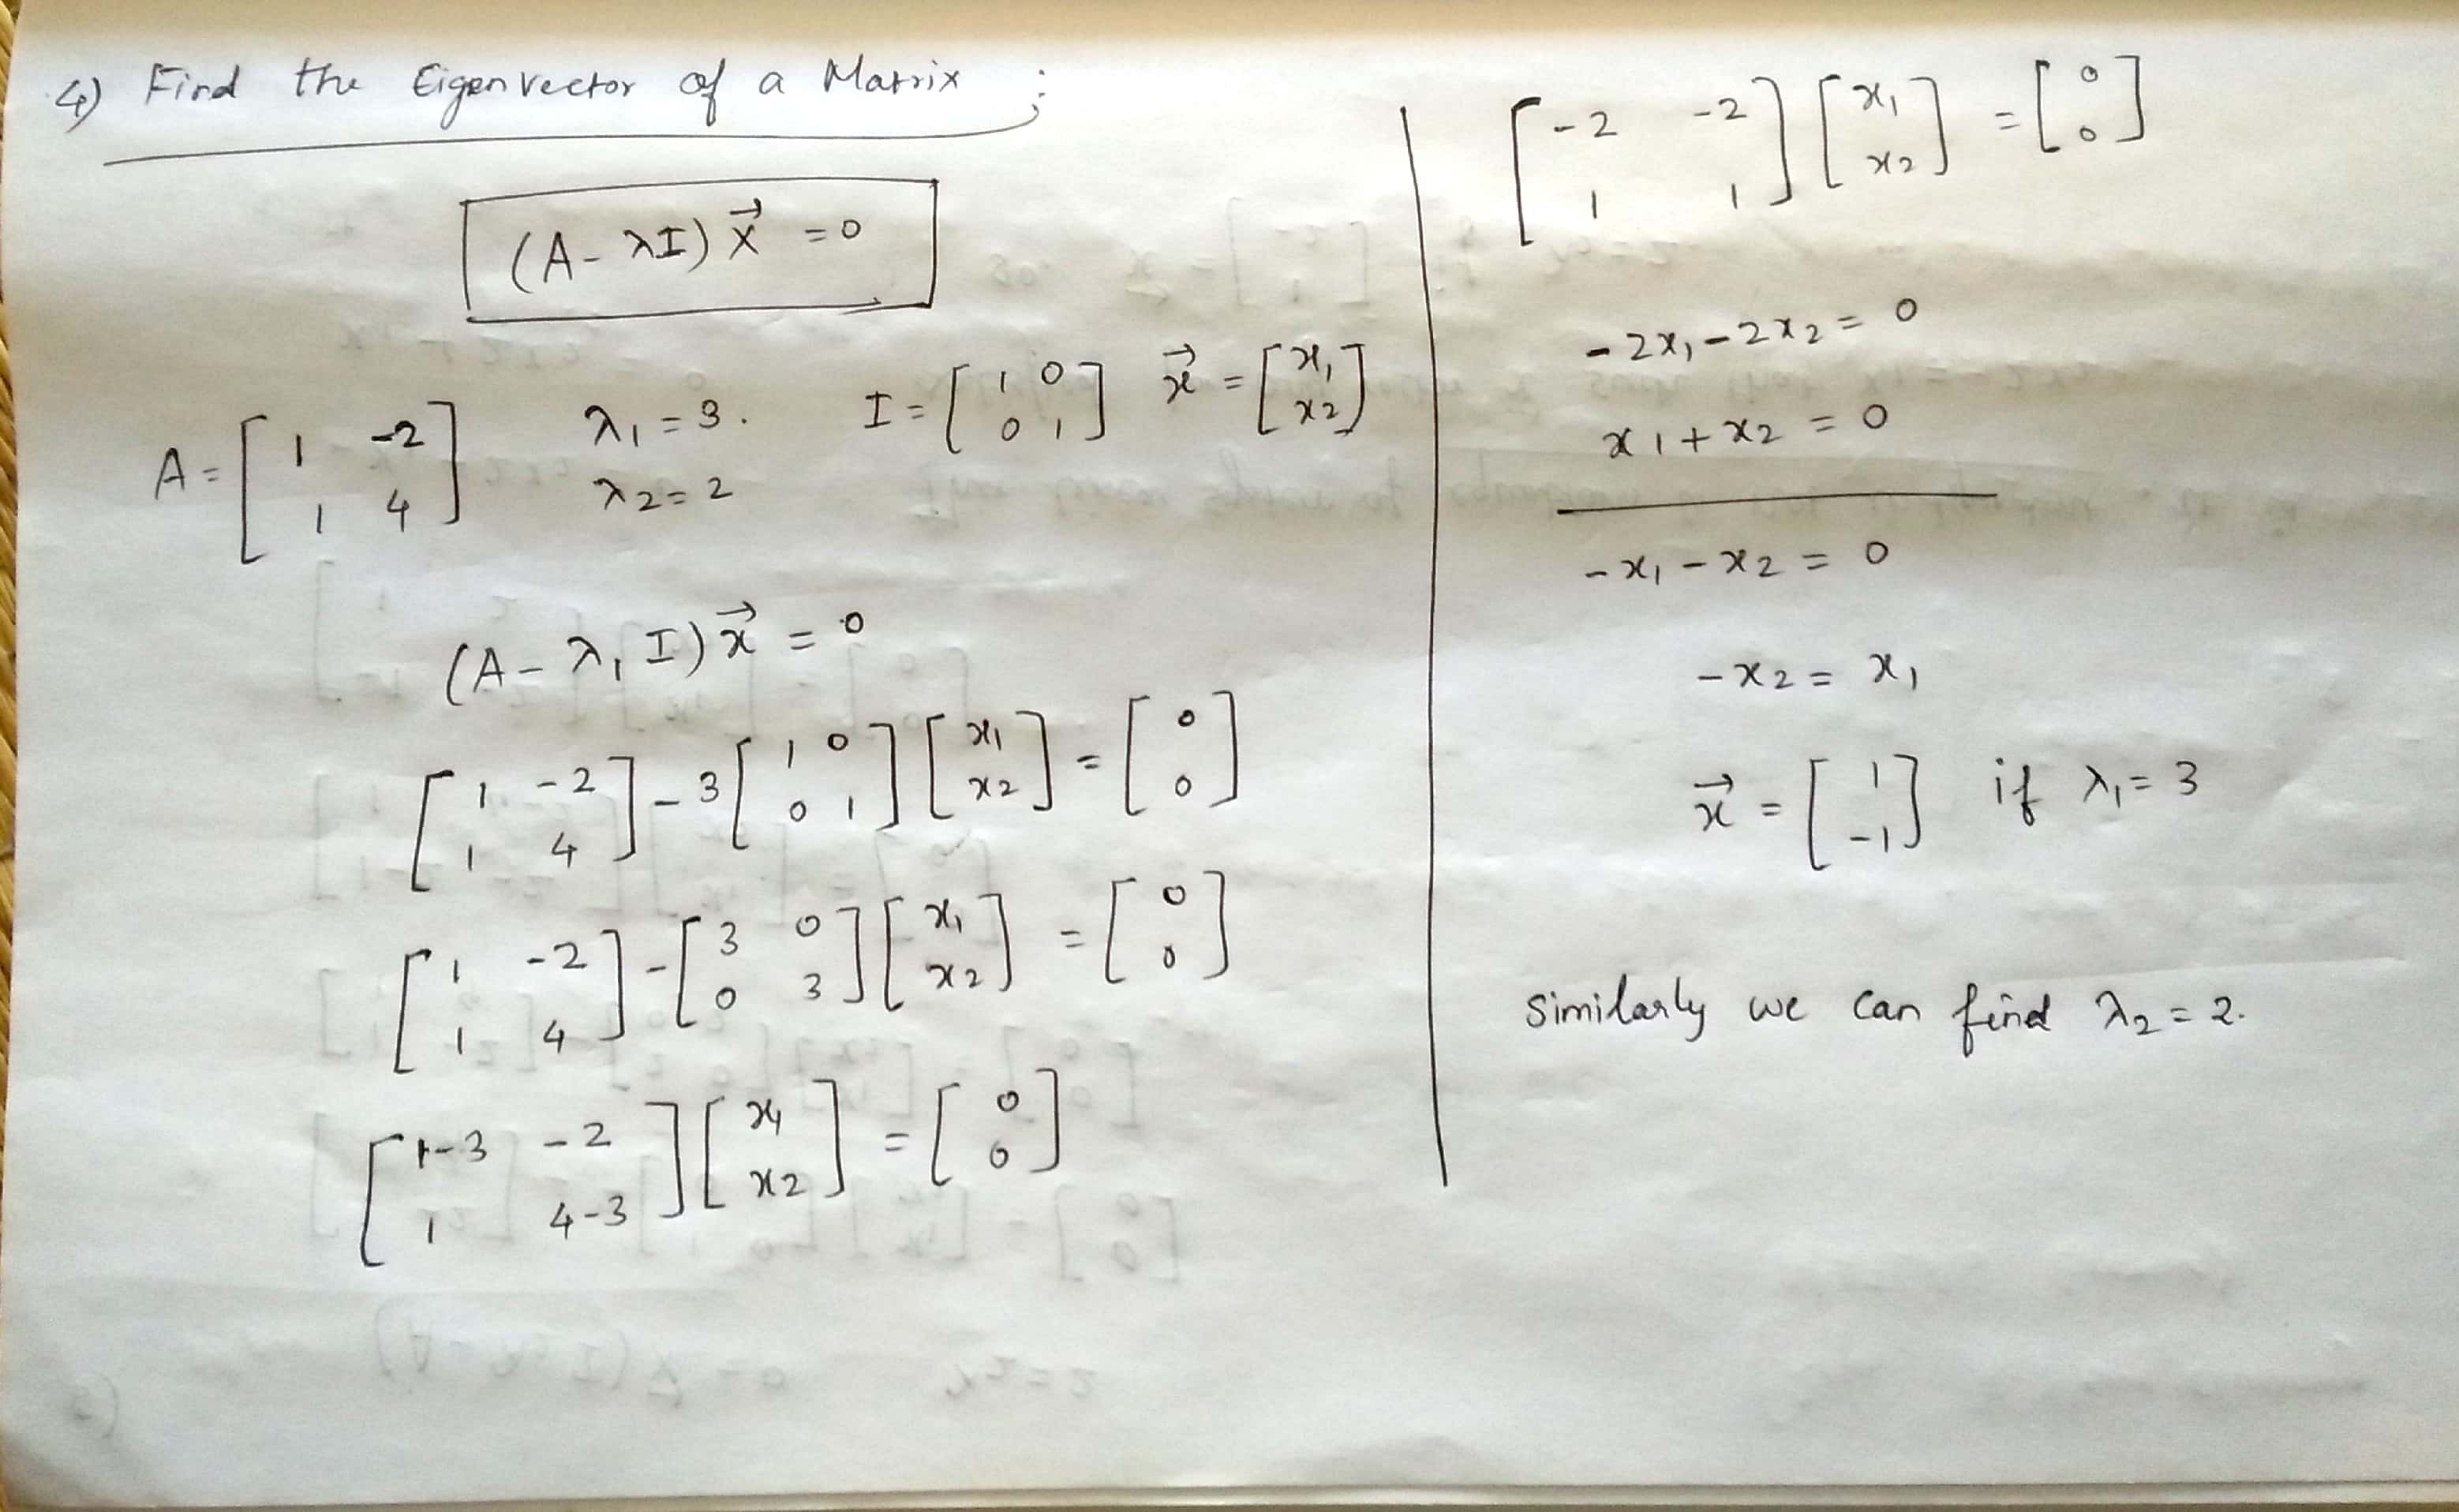 4) Find the Eigenvector of a Matrix ;
(A - λI) x⃗ = 0
A = [1 -2; 1 4] λ₁ = 3. λ₂ = 2 I = [1 0; 0 1] x⃗ = [x₁; x₂]
(A - λ₁ I) x⃗ = 0
[1 -2; 1 4] - 3 [1 0; 0 1] [x₁; x₂] = [0; 0]
[1 -2; 1 4] - [3 0; 0 3] [x₁; x₂] = [0; 0]
[1-3 -2; 1 4-3] [x₁; x₂] = [0; 0]
[-2 -2; 1 1] [x₁; x₂] = [0; 0]
-2x₁ - 2x₂ = 0
x₁ + x₂ = 0
-x₁ - x₂ = 0
-x₂ = x₁
x⃗ = [1; -1] if λ₁ = 3
Similarly we can find λ₂ = 2.